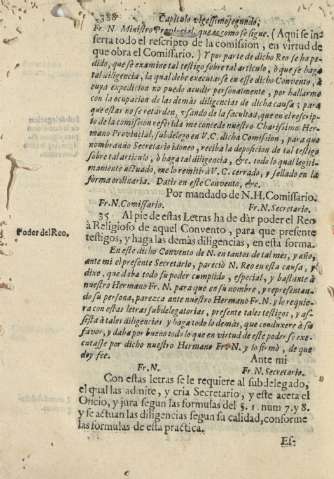 388 Capitulo vigessimosegundo.
Fr. N. Ministro Provincial, que es como se sigue. (Aqui se in-
serta todo el rescripto de la comission, en virtud de
que obra el Comissario.) Y por parte de dicho Reo se ha pe-
dido, que se examine tal testigo sobre tal articulo, ò que se haga
tal diligencia, la qual debe executarse en esse dicho Convento, à
cuya expedicion no puedo acudir personalmente, por hallarme
con la ocupacion de las demàs diligencias de dicha causa; para
que estas no se retarden, usando de la facultad, que en el rescrip-
to de la comission expedida me concede nuestro Charissimo Her-
mano Provincial, subdelego en V. C. dicha Comission, para que
nombrando Secretario idoneo, reciba la deposicion de tal testigo
sobre tal articulo, ò haga tal diligencia, &c. todo lo qual legiti-
mamente actuado, me lo remitirà V. C. cerrado, y sellado en la
forma ordinaria. Datis en este Convento, &c.
Por mandado de N. H. Comissario.
Fr. N. Comissario. Fr. N. Secretario.
35 Al pie de estas Letras ha de dàr poder el Reo
Poder del Reo.
à Religioso de aquel Convento, para que presente
testigos, y haga las demàs diligencias, en esta forma.
En este dicho Convento de N. en tantos de tal mes, y año,
ante mi el presente Secretario, pareciò N. Reo en esta causa, y
dixo, que daba todo su poder cumplido, especial, y bastante à
nuestro Hermano Fr. N. para que en su nombre, y representan-
do su persona, parezca ante nuestro Hermano Fr. N. y le requie-
ra con estas letras subdelegatorias, presente tales testigos, y as-
sista à tales diligencias y haga todo lo demàs, que conduxere à su
favor, y daba por bueno todo lo que en virtud de este poder se exe-
cutasse por dicho nuestro Hermano Fr. N. y lo firmò, de que
doy fee. Ante mi
Fr. N. Fr. N. Secretario.
Con estas letras se le requiere al subdelegado,
el qual las admite, y cria Secretario, y este aceta el
Oficio, y jura segun las formulas del §. 1. num 7. y 8.
y se actuan las diligencias segun su calidad, conforme
las formulas de esta practica.
Es-